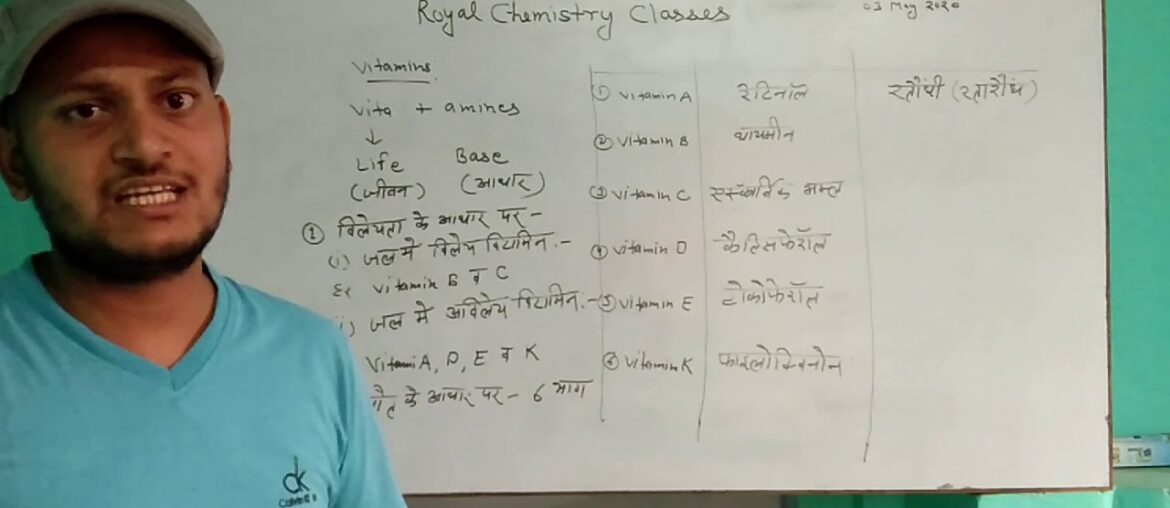 Royal Chemistry Classes
03 May 2020
Vitamins
Vita + amines
↓
Life Base
(जीवन) (आधार)
① विलेयता के आधार पर -
(i) जल में विलेय विटामिन :-
Ex vitamin B व C
i) जल में अविलेय विटामिन :-
Vitami A, D, E व K
के आधार पर - 6 भाग
① Vitamin A रेटिनॉल रतौंधी (रतारौंध)
② Vitamin B थायमीन
③ Vitamin C एस्कॉर्बिक अम्ल
④ Vitamin D कैल्सिफेरॉल
⑤ Vitamin E टोकोफेरॉल
⑥ Vitamin K फाइलोक्विनोन
ck